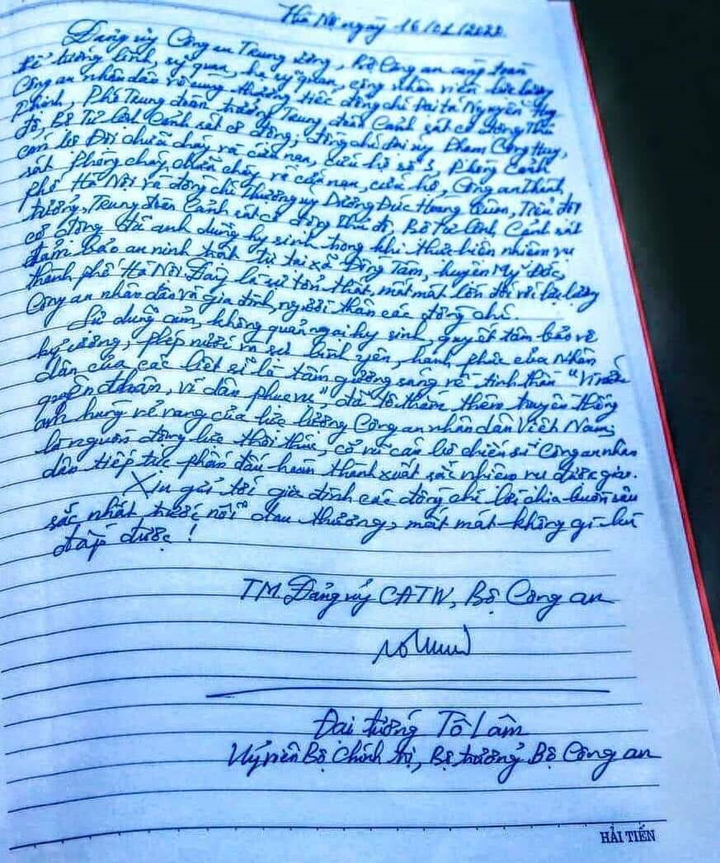 Hà Nội ngày 16/01/2020
Đảng ủy Công an Trung ương, Bộ Công an cùng toàn
thể tướng lĩnh, sỹ quan, hạ sỹ quan, công nhân viên lực lượng
Công an nhân dân vô cùng thương tiếc đồng chí Đại tá Nguyễn Huy
Thịnh, Phó Trung đoàn trưởng Trung đoàn Cảnh sát cơ động Thủ
đô, Bộ Tư lệnh Cảnh sát cơ động; đồng chí Đại úy Phạm Công Huy,
cán bộ Đội chữa cháy và cứu nạn, cứu hộ số 3, Phòng Cảnh
sát Phòng cháy, chữa cháy và cứu nạn, cứu hộ, Công an Thành
phố Hà Nội và đồng chí Thượng úy Dương Đức Hoàng Quân, Tiểu đội
trưởng, Trung đoàn Cảnh sát cơ động Thủ đô, Bộ Tư lệnh Cảnh sát
cơ động đã anh dũng hy sinh trong khi thực hiện nhiệm vụ
đảm bảo an ninh trật tự tại xã Đồng Tâm, huyện Mỹ Đức,
thành phố Hà Nội. Đây là sự tổn thất, mất mát lớn đối với lực lượng
Công an nhân dân và gia đình, người thân các đồng chí.
Sự dũng cảm, không quản ngại hy sinh, quyết tâm bảo vệ
kỷ cương, phép nước vì sự bình yên, hạnh phúc của Nhân
dân của các liệt sĩ là tấm gương sáng về tinh thần "Vì nước
quên thân, vì dân phục vụ", đã tô thắm thêm truyền thống
anh hùng vẻ vang của lực lượng Công an nhân dân Việt Nam,
là nguồn động lực thôi thúc, cổ vũ cán bộ chiến sĩ Công an nhân
dân tiếp tục phấn đấu hoàn thành xuất sắc nhiệm vụ được giao.
Xin gửi tới gia đình các đồng chí lời chia buồn sâu
sắc nhất trước nỗi đau thương, mất mát không gì bù
đắp được!
TM. Đảng ủy CATW, Bộ Công an
Đại tướng Tô Lâm
Uỷ viên Bộ Chính trị, Bộ trưởng Bộ Công an
HẢI TIẾN